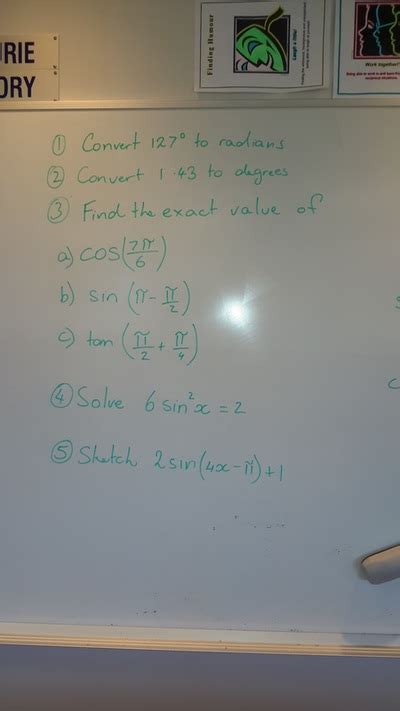 URIE
ORY
Finding Humour
Laugh a little!
Work together!
① Convert 127° to radians
② Convert 1.43 to degrees
③ Find the exact value of
a) cos(7π/6)
b) sin (π - π/2)
c) tan (π/2 + π/4)
④ Solve 6 sin²x = 2
⑤ Sketch 2 sin(4x - π) + 1